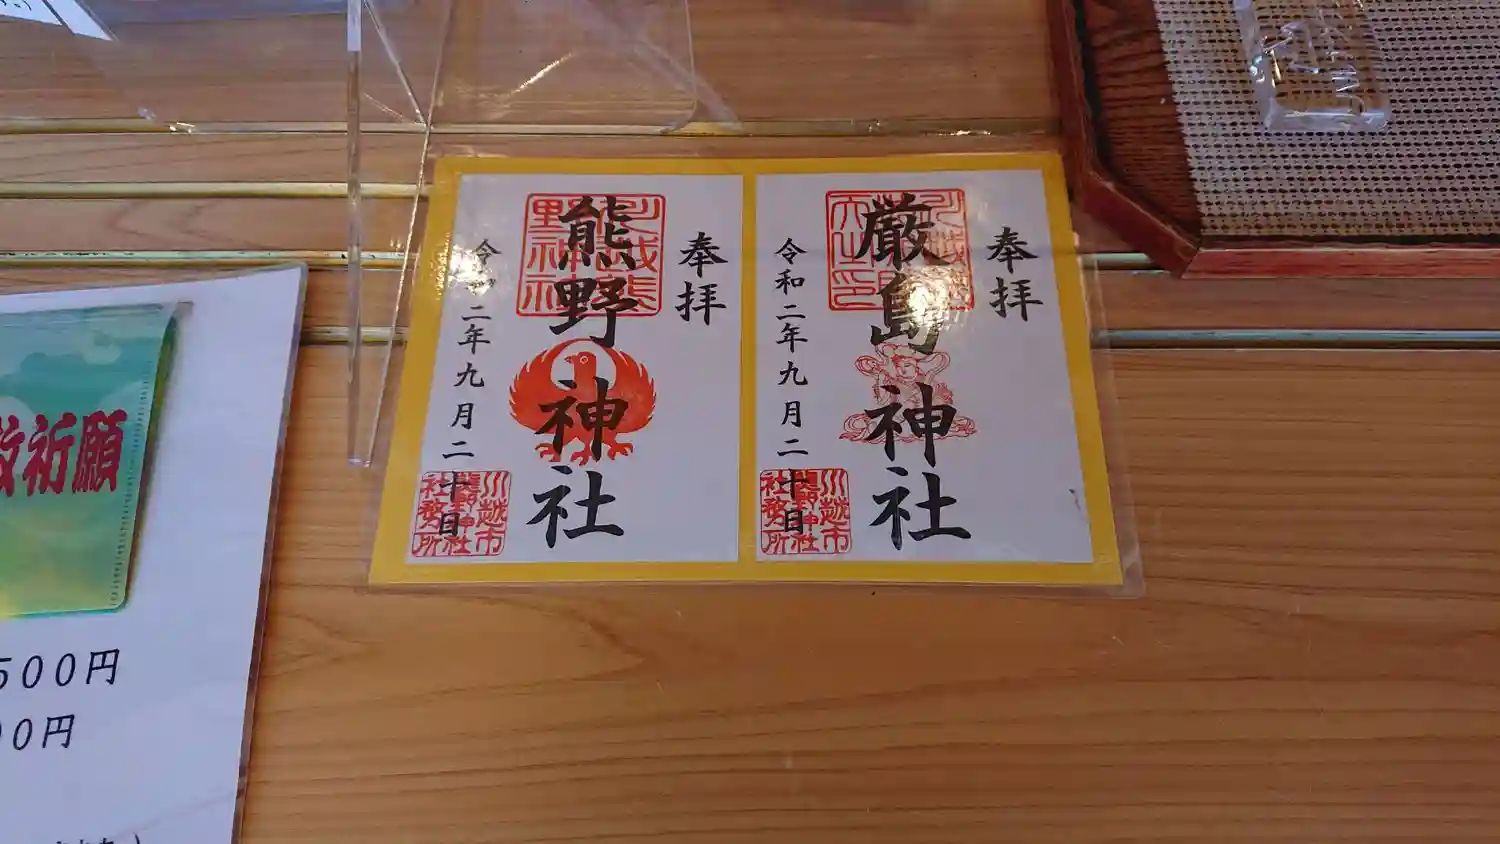 奉拝
厳島神社
令和二年九月二十日
川越市
熊野神社
社務所
奉拝
熊野神社
令和二年九月二十日
川越熊
野神社
川越市
熊野神社
社務所
祈願
500円
00円